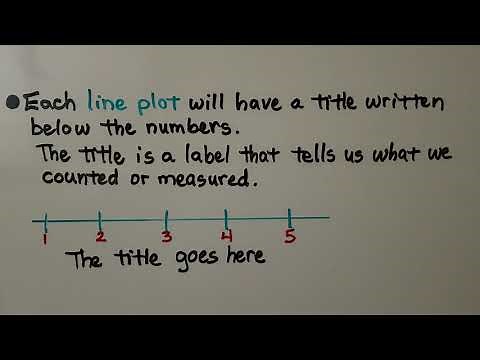 Each line plot will have a title written
below the numbers.
The title is a label that tells us what we
counted or measured.
1 2 3 4 5
The title goes here